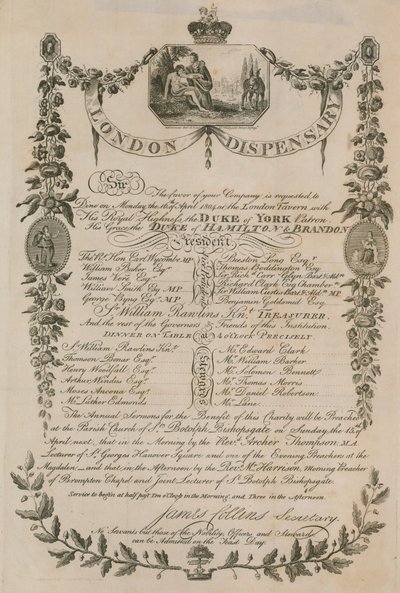 LONDON DISPENSARY
Sir
The favor of your Company is requested to
Dine on Monday the 16th April 1804 at the London Tavern with
His Royal Highness the DUKE of YORK Patron
His Grace the DUKE of HAMILTON & BRANDON
President
The Rt. Hon. Earl Wycombe MP
William Baker Esqr.
James Vere Esqr.
William Smith Esq. MP
George Byng Esqr. MP
Vice Presidents
Beeston Long Esqr.
Thomas Boddington Esq.
Sir Rich. Carr Glyn Bart. & Aldn.
Richard Clark Esq. Chambern.
Sir William Curtis Bart. & Aldn. MP
Benjamin Goldsmid Esqr.
Sr. William Rawlins Knt. TREASURER.
And the rest of the Governors & Friends of this Institution.
DINNER ON TABLE at 4 o'CLOCK PRECISELY.
Sr. William Rawlins Knt.
Thomson Bonar Esqr.
Henry Woodfall Esqr.
Arthur Windus Esqr.
Moses Ancona Esqr.
Mr. Luther Edmunds
Stewards
Mr. Edward Clark.
Mr. William Barker
Mr. Solomon Bennett
Mr. Thomas Morris
Mr. Daniel Robertson
Mr. Lane
The Annual Sermons for the Benefit of this Charity will be Preached
at the Parish Church of St. Botolph Bishopsgate on Sunday, the 15th of
April next, that in the Morning by the Revd. Archer Thompson M.A.
Lecturer of St. Georges Hanover Square and one of the Evening Preachers at the
Magdalen,—and that in the Afternoon by the Revd. Mr. Harrison, Morning Preacher
of Brompton Chapel and Joint Lecturer of St. Botolph Bishopsgate.
Service to begin at half past Ten o'Clock in the Morning, and Three in the Afternoon.
James Collens Secretary.
No Servants but those of the Nobility, Officers, and Stewards
can be Admitted on the Feast Day.